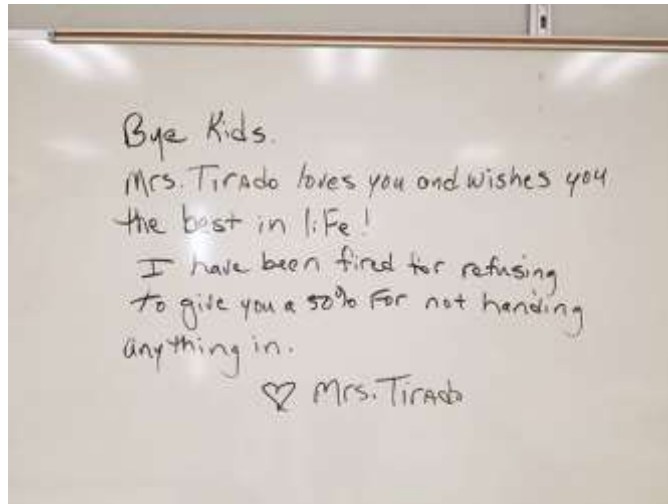 Bye Kids.
Mrs. Tirado loves you and wishes you
the best in life!
I have been fired for refusing
to give you a 50% for not handing
anything in.
♡ Mrs. Tirado